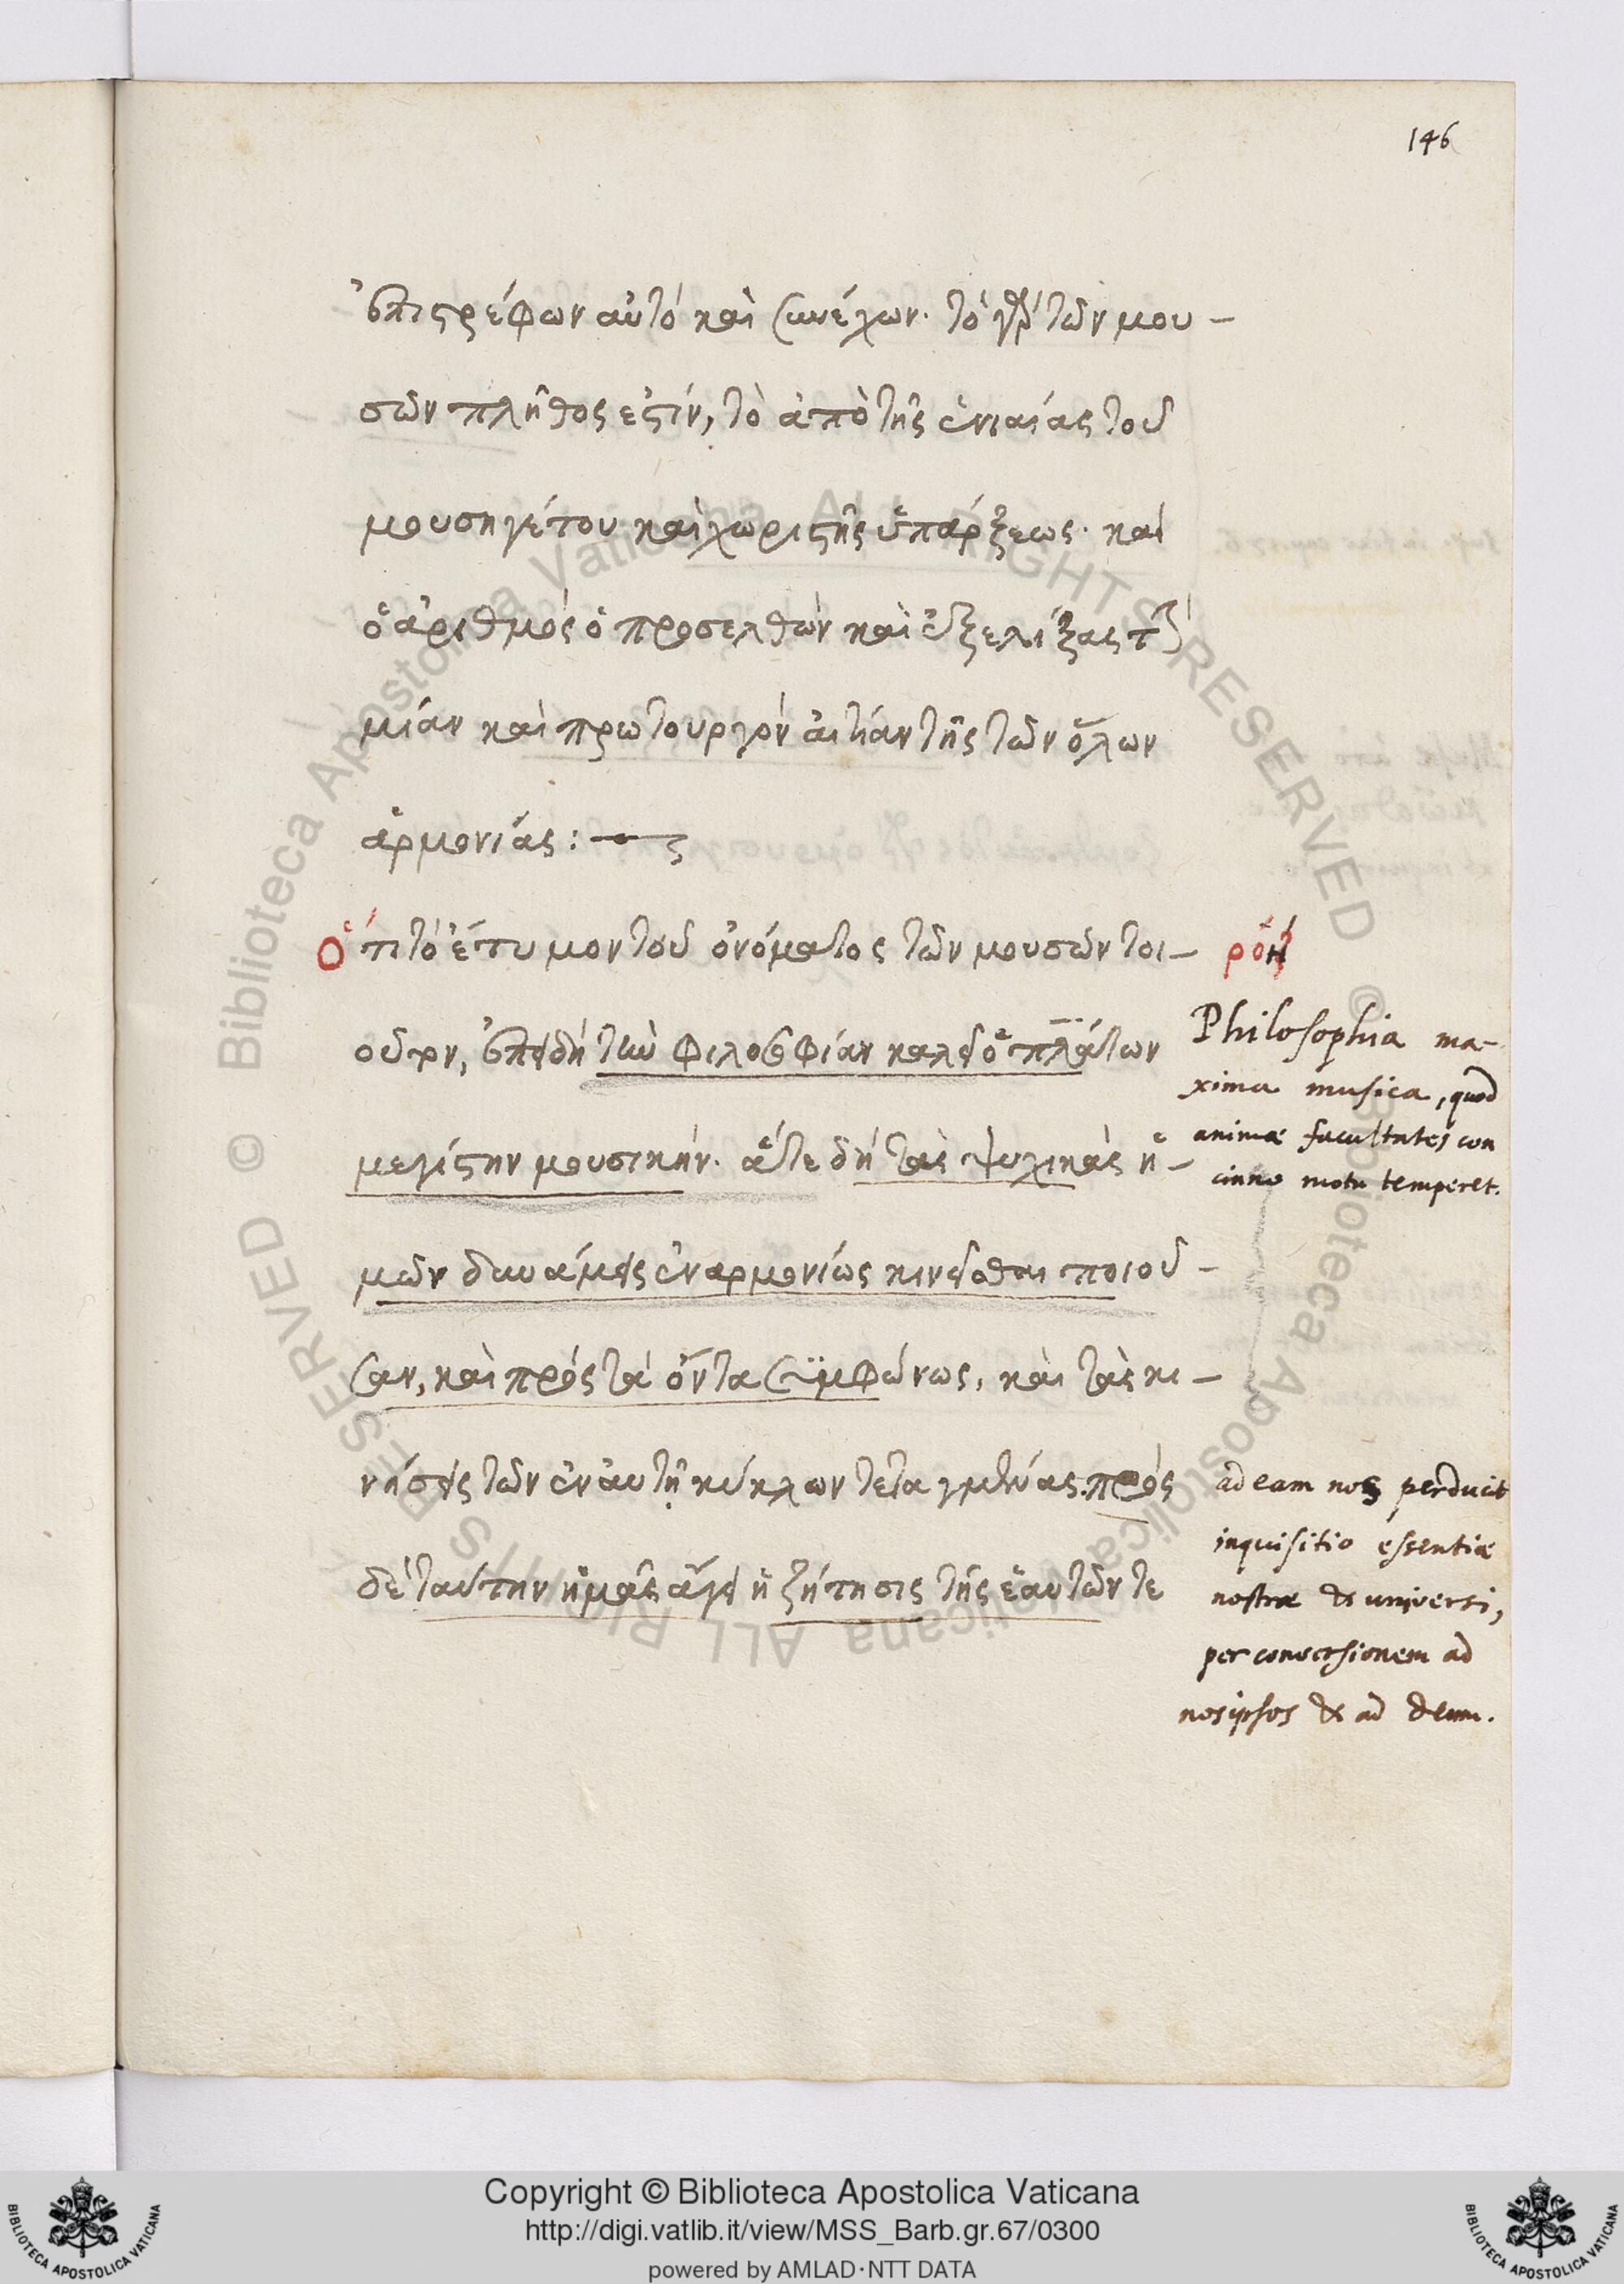 146
ἐπιστρέφων αὐτὸ καὶ συνέχων· τὸ γὰρ τῶν μου-
σῶν πλῆθος ἐστίν, τὸ ἀπὸ τῆς ἑνιαίας τοῦ
μουσηγέτου καὶ χωριστῆς ὑπάρξεως· καὶ
ὁ ἀριθμὸς ὁ προσελθὼν καὶ ἐξελίξας τὴν
μίαν καὶ πρωτουργὸν αἰτίαν τῆς τῶν ὅλων
ἁρμονίας:
Ὅτι τὸ ἔτυμον τοῦ ὀνόματος τῶν μουσῶν τοι-
οῦτον, ἐπειδὴ τὴν φιλοσοφίαν καλεῖ ὁ πλάτων
Philosophia ma-
xima musica, quod
μεγίστην μουσικήν· ἅτε δὴ τὰς ψυχικὰς ἡ-
animæ facultates con
cinno motu temperet.
μῶν δυνάμεις ἐναρμονίως κινεῖσθαι ποιοῦ-
σαν, καὶ πρὸς τὰ ὄντα συμφώνως, καὶ τὰς κι-
νήσεις τῶν ἐν αυτῇ κύκλων τεταγμένας. πρὸς
δὲ ταύτην ἡμᾶς ἄγει ἡ ζήτησις τῆς ἑαυτῶν τε
ad eam nos perducit
inquisitio essentiæ
nostræ & universi,
per conversionem ad
nos ipsos & ad deum.
Copyright © Biblioteca Apostolica Vaticana
http://digi.vatlib.it/view/MSS_Barb.gr.67/0300
powered by AMLAD·NTT DATA
BIBLIOTECA APOSTOLICA VATICANA
BIBLIOTECA APOSTOLICA VATICANA
© Biblioteca Apostolica Vaticana ALL RIGHTS RESERVED © Biblioteca Apostolica Vaticana ALL RIGHTS RESERVED